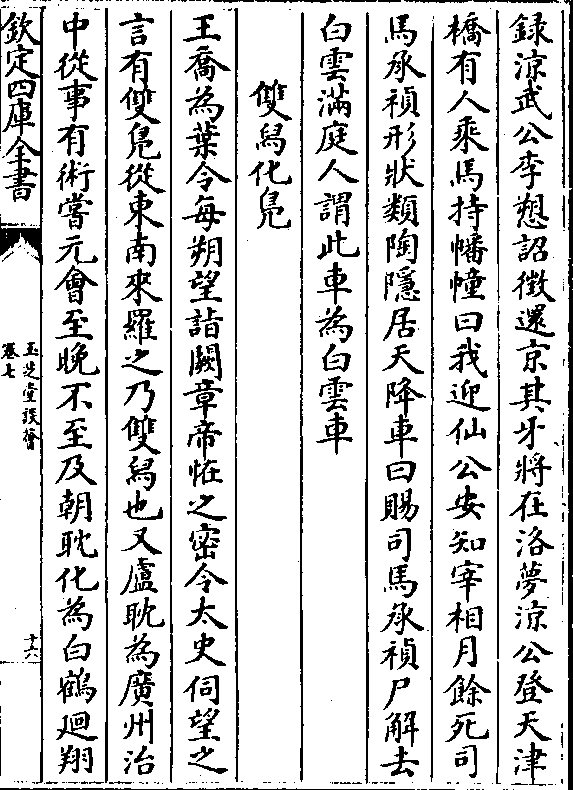 録涼武公李愬詔徴還京其牙將在洛夢涼公登天津
橋有人乘馬持幡幢曰我迎仙公安知宰相月餘死司
馬承禎形狀類陶隱居天降車曰賜司馬承禎尸解去
白雲滿庭人謂此車為白雲車
雙舄化鳬
王喬為葉令每朔望詣闕章帝恠之密令太史伺望之
言有雙鳬從東南來羅之乃雙舄也又盧耽為廣州治
中從事有術嘗元會至晩不至及朝耽化為白鶴迴翔
欽定四庫全書
玉芝堂談薈
卷七
十六